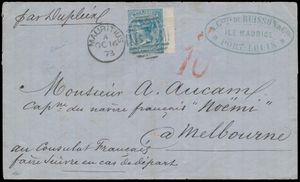 par Dupleix
MAURITIUS
A
OC 16
73
Cie DU BUISSON & Cie
ILE MAURICE
PORT LOUIS
10
Monsieur A. Aucam
Capne du navire français "Noëmi"
à Melbourne
au Consulat Français
faire suivre en cas de départ